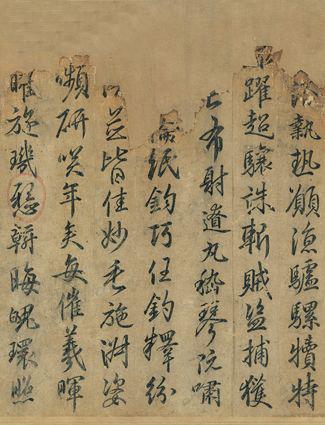 浴執熱願涼驢騾犢特
躍超驤誅斬賊盜捕獲
亡布射遼丸嵇琴阮嘯
倫紙鈞巧任釣釋紛
並皆佳妙毛施淑姿
嚬研咲年矢每催羲暉
曜旋璣懸斡晦魄環照